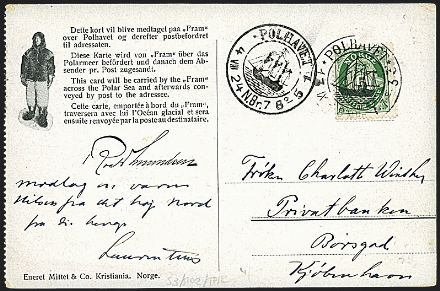 Dette kort vil blive medtaget paa „Fram“
over Polhavet og derefter postbefordret
til adressaten.
Diese Karte wird von „Fram“ über das
Polarmeer befördert und danach dem Ab-
sender pr. Post zugesandt.
This card will be carried by the „Fram“
across the Polar Sea and afterwards con-
veyed by post to the adressee.
Cette carte, emportée à bord du „Fram“,
traversera avec lui l'Océan glacial et sera
ensuite renvoyée par la poste au destinataire.
POLHAVET
24 N.Br. 7 825
POLHAVET
NORGE
modtag en varm
hilsen fra det høj Nord
Laurentius
Frøken Charlotte
Privatbanken
Børsgad
Kjøbenhavn
Eneret Mittet & Co. Kristiania. Norge.